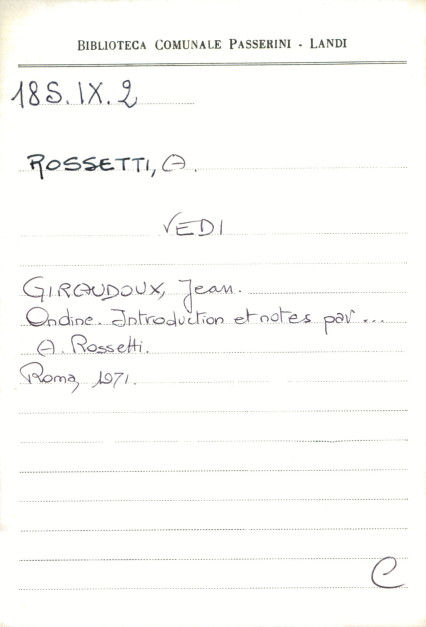 BIBLIOTECA COMUNALE PASSERINI - LANDI
18S.IX.2
ROSSETTI, A.
VEDI
GIRAUDOUX, Jean.
Ondine. Introduction et notes par ...
A. Rossetti.
Roma, 1971.
C